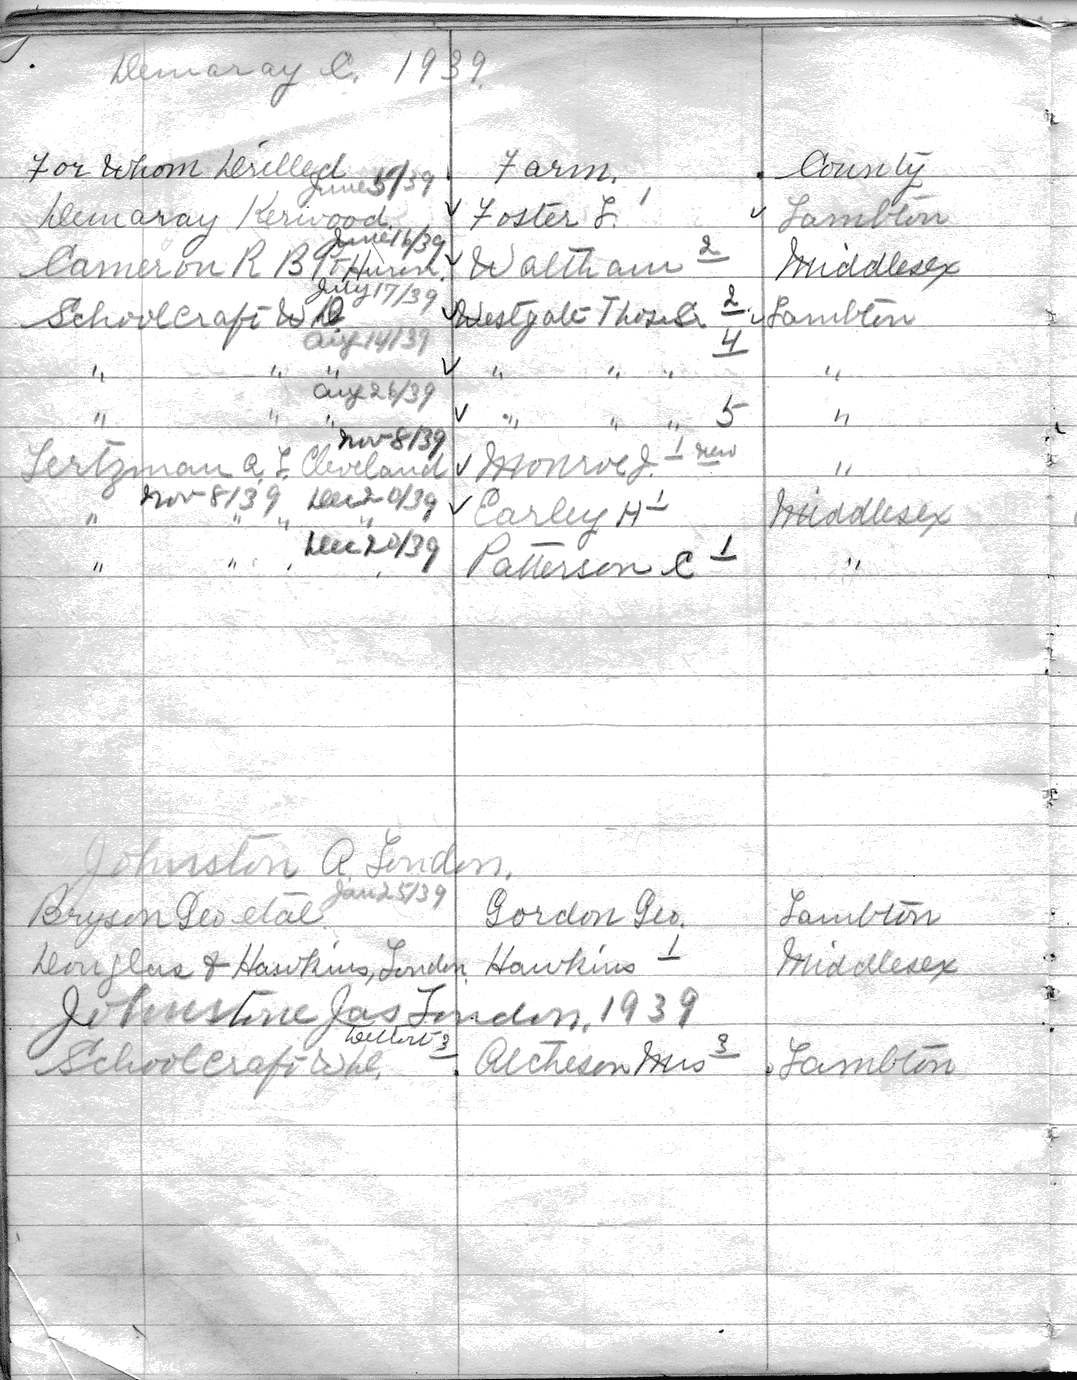 Demaray C. 1939
For Whom Drilled Farm. County
June 5/39
Demaray Kerwood ✓ Foster L. 1 ✓ Lambton
June 16/39
Cameron R B Pt Huron ✓ Waltham 2 Middlesex
July 17/39
Schoolcraft W D ✓ Westgate Thos Sr 2 ✓ Lambton
Aug 14/39 4
" " " ✓ " " " "
Aug 26/39
" " " ✓ " " " 5 "
Nov 8/39
Lertzman A. L. Cleveland ✓ Monroe J. 1 new "
Nov 8/39 Dec 20/39
" " " " ✓ Earley H 1 Middlesex
Dec 20/39
" " " " Patterson C 1 "
Johnston A. London.
Jan 25/39
Bryson Geo etal Gordon Geo. Lambton
Douglas & Hawkins, London Hawkins 1 Middlesex
Johnstone Jas London, 1939
3
Schoolcraft Wm. Atcheson Mrs 3 Lambton